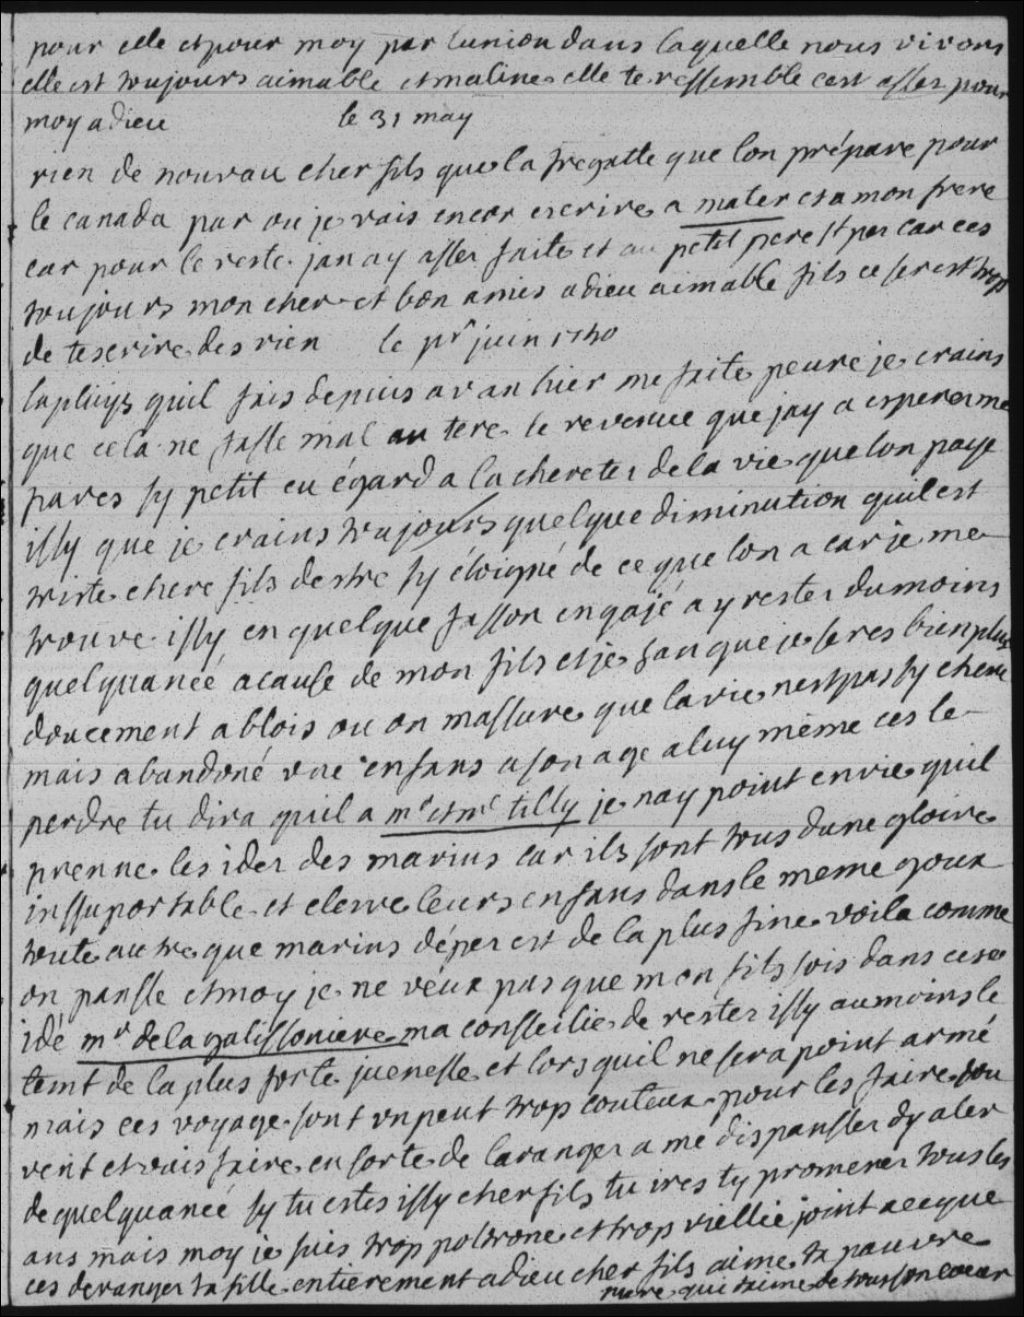 pour elle et pour moy par lunion dans laquelle nous vivons
elle est toujours aimable et maline elle te ressemble cest asses pour
moy adieu le 31 may
rien de nouvau cher fils que la fregatte que lon prépare pour
le canada par ou je vais encor escrire a mater et a mon frere
car pour le reste jan ay asses faite et au petit pere st per car ces
toujours mon cher et bon amis adieu aimable fils ce serest trop
de tescrire des rien le pr juin 1740
la pluys quil fais depuis avan hier me faite peure je crains
que cela ne fasse mal au tere le revenue que jay a esperer me
pares sy petit eu égard a la chereter de la vie que lon paye
issy que je crains toujours quelque diminution quil est
triste chere fils destre sy éloigné de ce que lon a car je me
trouve issy en quelque fasson engajé a y rester du moins
quelquaneé a cause de mon fils et je san que je seres bien plus
doucement a blois ou on massure que la vie nest pas sy chere
mais abandoné une enfans a son age a luy même ces le
perdre tu dira quil a mr et me tilly je nay point envie quil
prenne les idez des marins car ils sont tous dune gloire
inssuportable et eleve leurs enfans dans le meme goux
toute autre que marins déper est de la plus fine voila comme
on pansse et moy je ne véux pas que mon fils sois dans cese
idé mr de la galissoniere ma conssellie de rester issy au moins le
temt de la plus forte juenesse et lors quil ne sera point armé
mais ces voyage sont un peut trop couteux pour les faire sou
vent et vais faire en sorte de laranger a me dispansser dy aler
de quelquaneé sy tu estes issy cher fils tu ires ty promener tous les
ans mais moy je suis trop poltrone et trop viellie joint a ceque
ces deranger ta fille entierement adieu cher fils aime ta pauvre
mere qui taime de tout son coeur